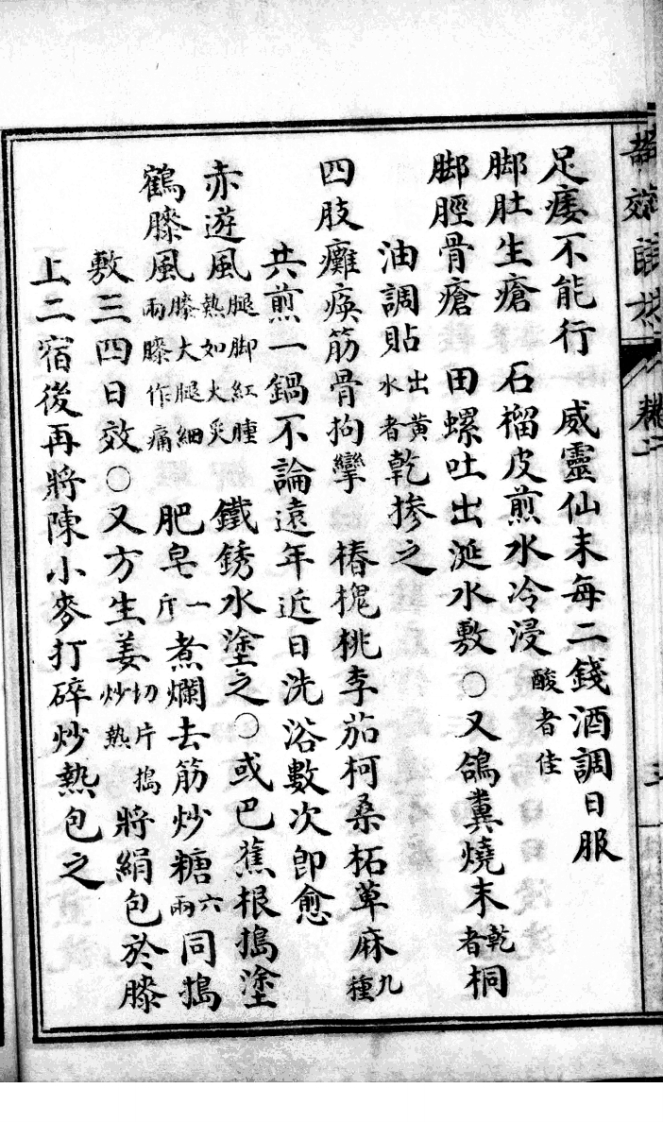 足痿不能行　威靈仙末每二錢酒調日服
脚肚生瘡　石榴皮煎水冷浸酸者佳
脚脛骨瘡　田螺吐出涎水敷○又鴿糞燒末乾者桐
油調貼出黃水者乾摻之
四肢癱瘓筋骨拘攣　椿槐桃李茄柯桑柘萆麻九種
共煎一鍋不論遠年近日洗浴數次即愈
赤遊風腿脚紅腫熱如火炙　鐵銹水塗之○或巴蕉根搗塗
鶴膝風膝大腿細兩膝作痛　肥皂一斤煮爛去筋炒糖六兩同搗
敷三四日效○又方生姜切片搗炒熱將絹包於膝
上二宿後再將陳小麥打碎炒熱包之